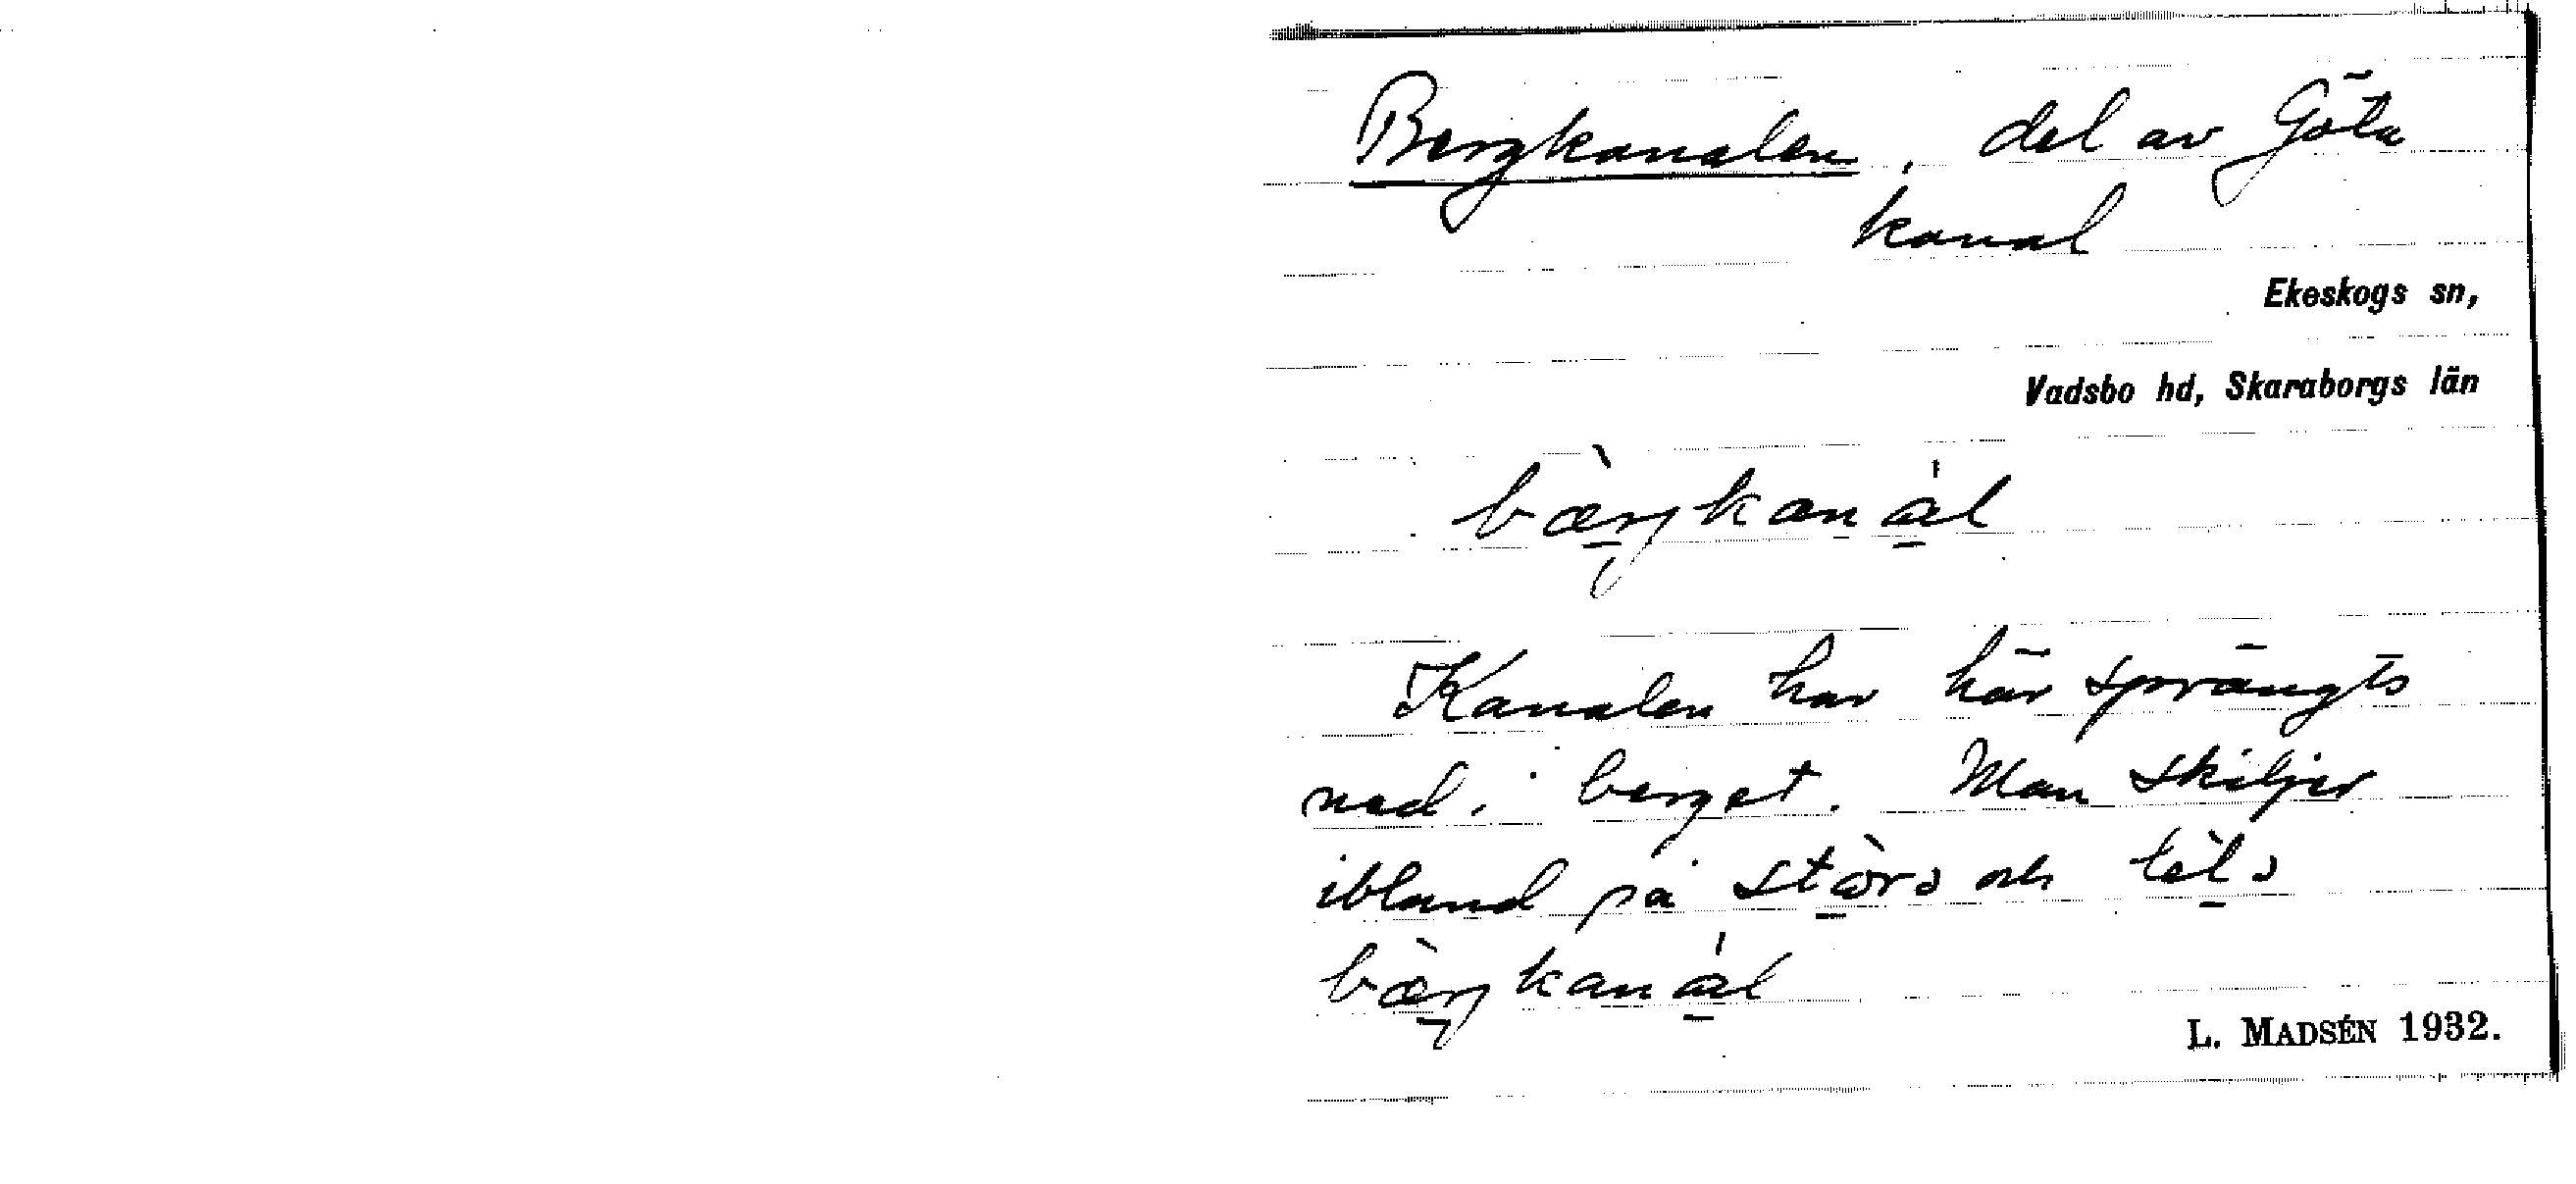 Bergkanalen, del av Göta
kanal
Ekeskogs sn,
Vadsbo hd, Skaraborgs län
bæ̀rjkanál
Kanalen har här sprängts
ned i berget. Man skiljer
ibland på och
bæ̀rjkanál
L. MADSÉN 1932.